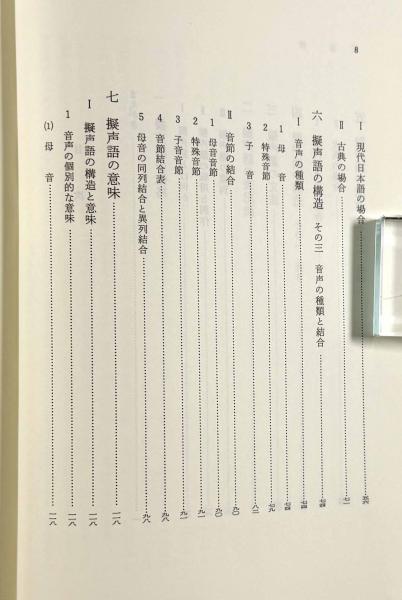 8
Ⅰ 現代日本語の場合
Ⅱ 古典の場合……七一
六 擬声語の構造 その三 音声の種類と結合……七四
Ⅰ 音声の種類……七四
1 母音……七四
2 特殊音節……七九
3 子音……八二
Ⅱ 音節の結合……九〇
1 母音音節……九〇
2 特殊音節……九一
3 子音音節……九一
4 音節結合表……九八
5 母音の同列結合と異列結合……九八
七 擬声語の意味……一一八
Ⅰ 擬声語の構造と意味……一一八
1 音声の個別的な意味……一一八
(1) 母音……一一八